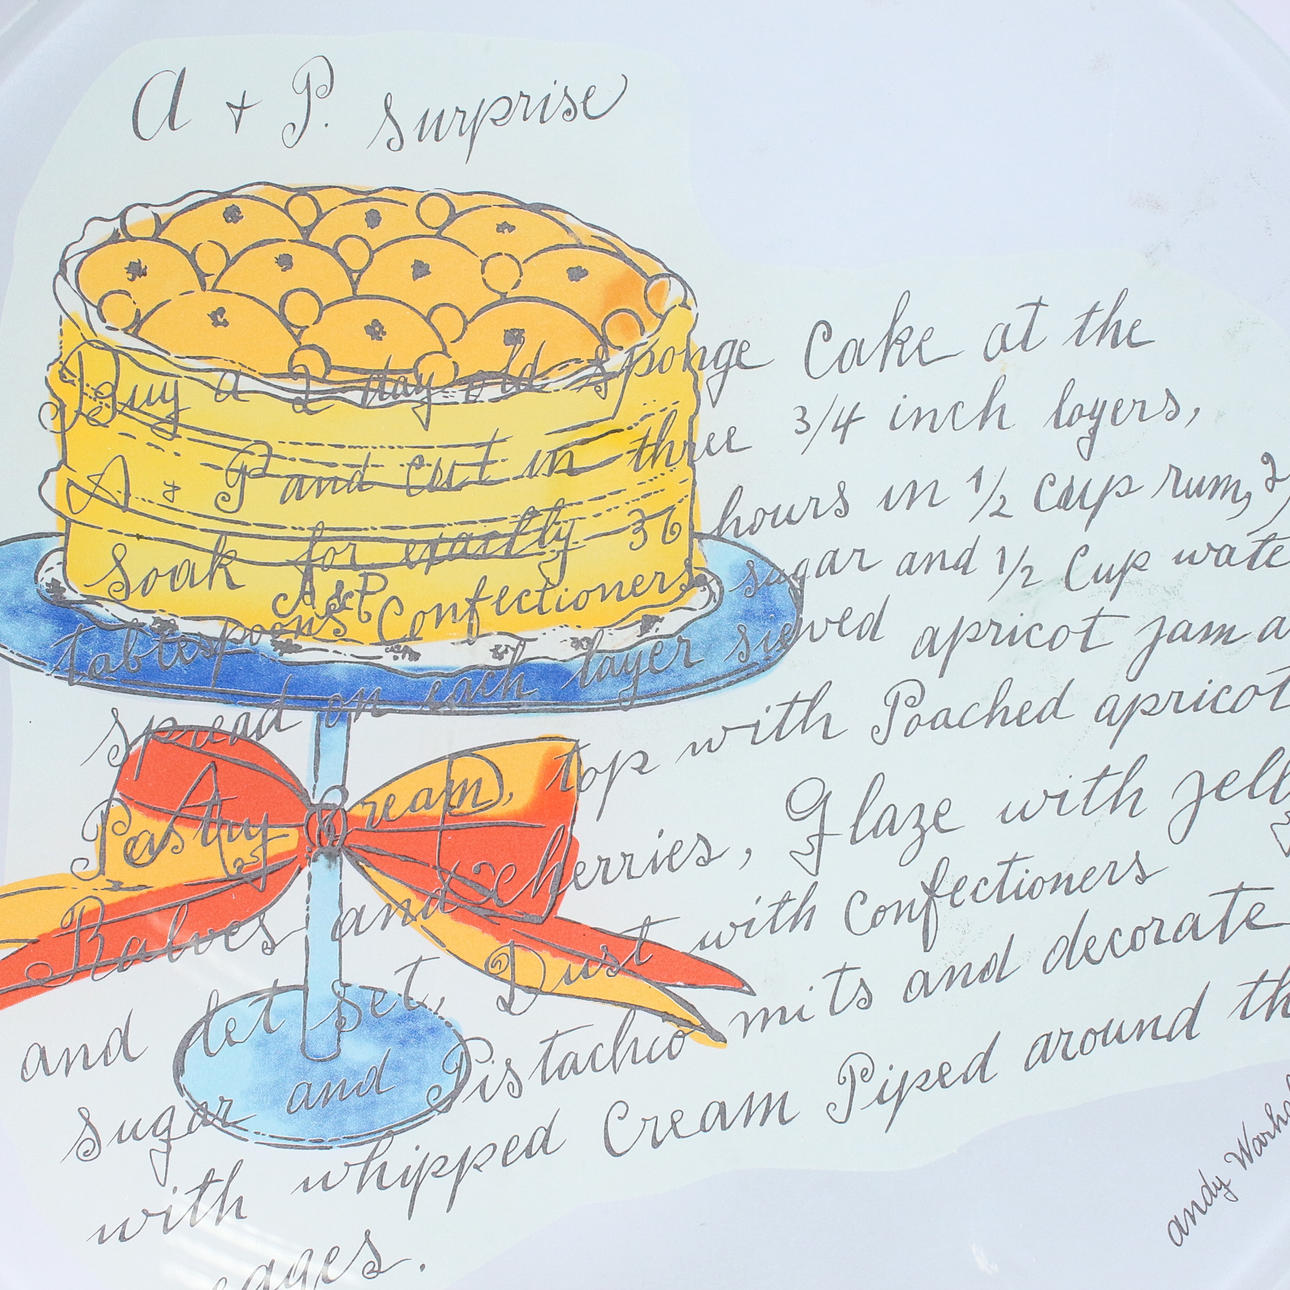 A + P. surprise
Buy a 2 day old sponge Cake at the
A & P and cut in three 3/4 inch layers,
soak for exactly 36 hours in 1/2 cup rum, 2
tablespoons A&P Confectioners sugar and 1/2 Cup wate
spread on each layer sieved apricot jam a
Pastry Cream, top with Poached apricot
Halves and cherries, Glaze with jell
and let set, Dust with Confectioners
sugar and Pistachio mits and decorate
with whipped Cream Piped around th
eages.
andy Warho